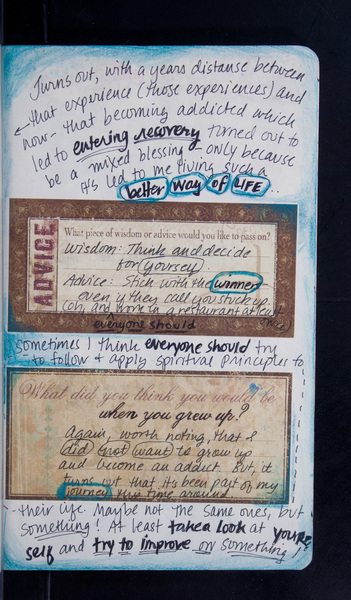 Turns out, with a years distanse between
that experience (those experiences) and
now - that becoming addicted which
led to entering recovery turned out to
be a mixed blessing - only because
it's led to me living such a
better way of LIFE...
ADVICE
What piece of wisdom or advice would you like to pass on?
Wisdom: Think and decide
for yourself.
Advice: Stick with the winners
even if they call you stuck up.
(oh, and work in a restaurant at least
once)
everyone should
sometimes I think everyone should try
to follow & apply spiritual principles to
What did you think you would be
when you grew up?
Again, worth noting, that I
did not want to grow up
and become an addict. But, it
turns out that it's been part of my
journey this time around.
their life. Maybe not the same ones, but
something! At least take a look at your
self and try to improve on something!